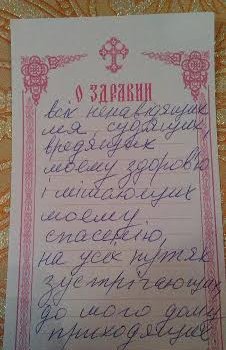 О ЗДРАВИИ
всіх ненавидящих
мя, судящих,
вредящих
моему здоров'ю
і мішающих
моему
спасенію,
на усіх путях
зустрігающих,
до мого дому
приходящих